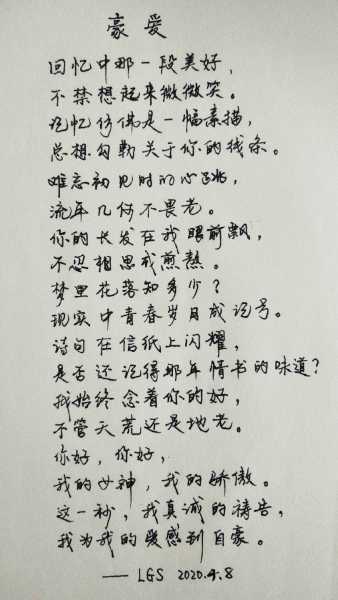 豪爱
回忆中那一段美好，
不禁想起来微微笑。
记忆仿佛是一幅素描，
总想勾勒关于你的线条。
难忘初见时的心跳，
流年几何不畏老。
你的长发在我眼前飘，
不忍相思成煎熬。
梦里花落知多少？
现实中青春岁月成记号。
诗句在信纸上闪耀，
是否还记得那年情书的味道？
我始终念着你的好，
不管天荒还是地老。
你好，你好，
我的女神，我的骄傲。
这一秒，我真诚的祷告，
我为我的爱感到自豪。
——LGS 2020.4.8